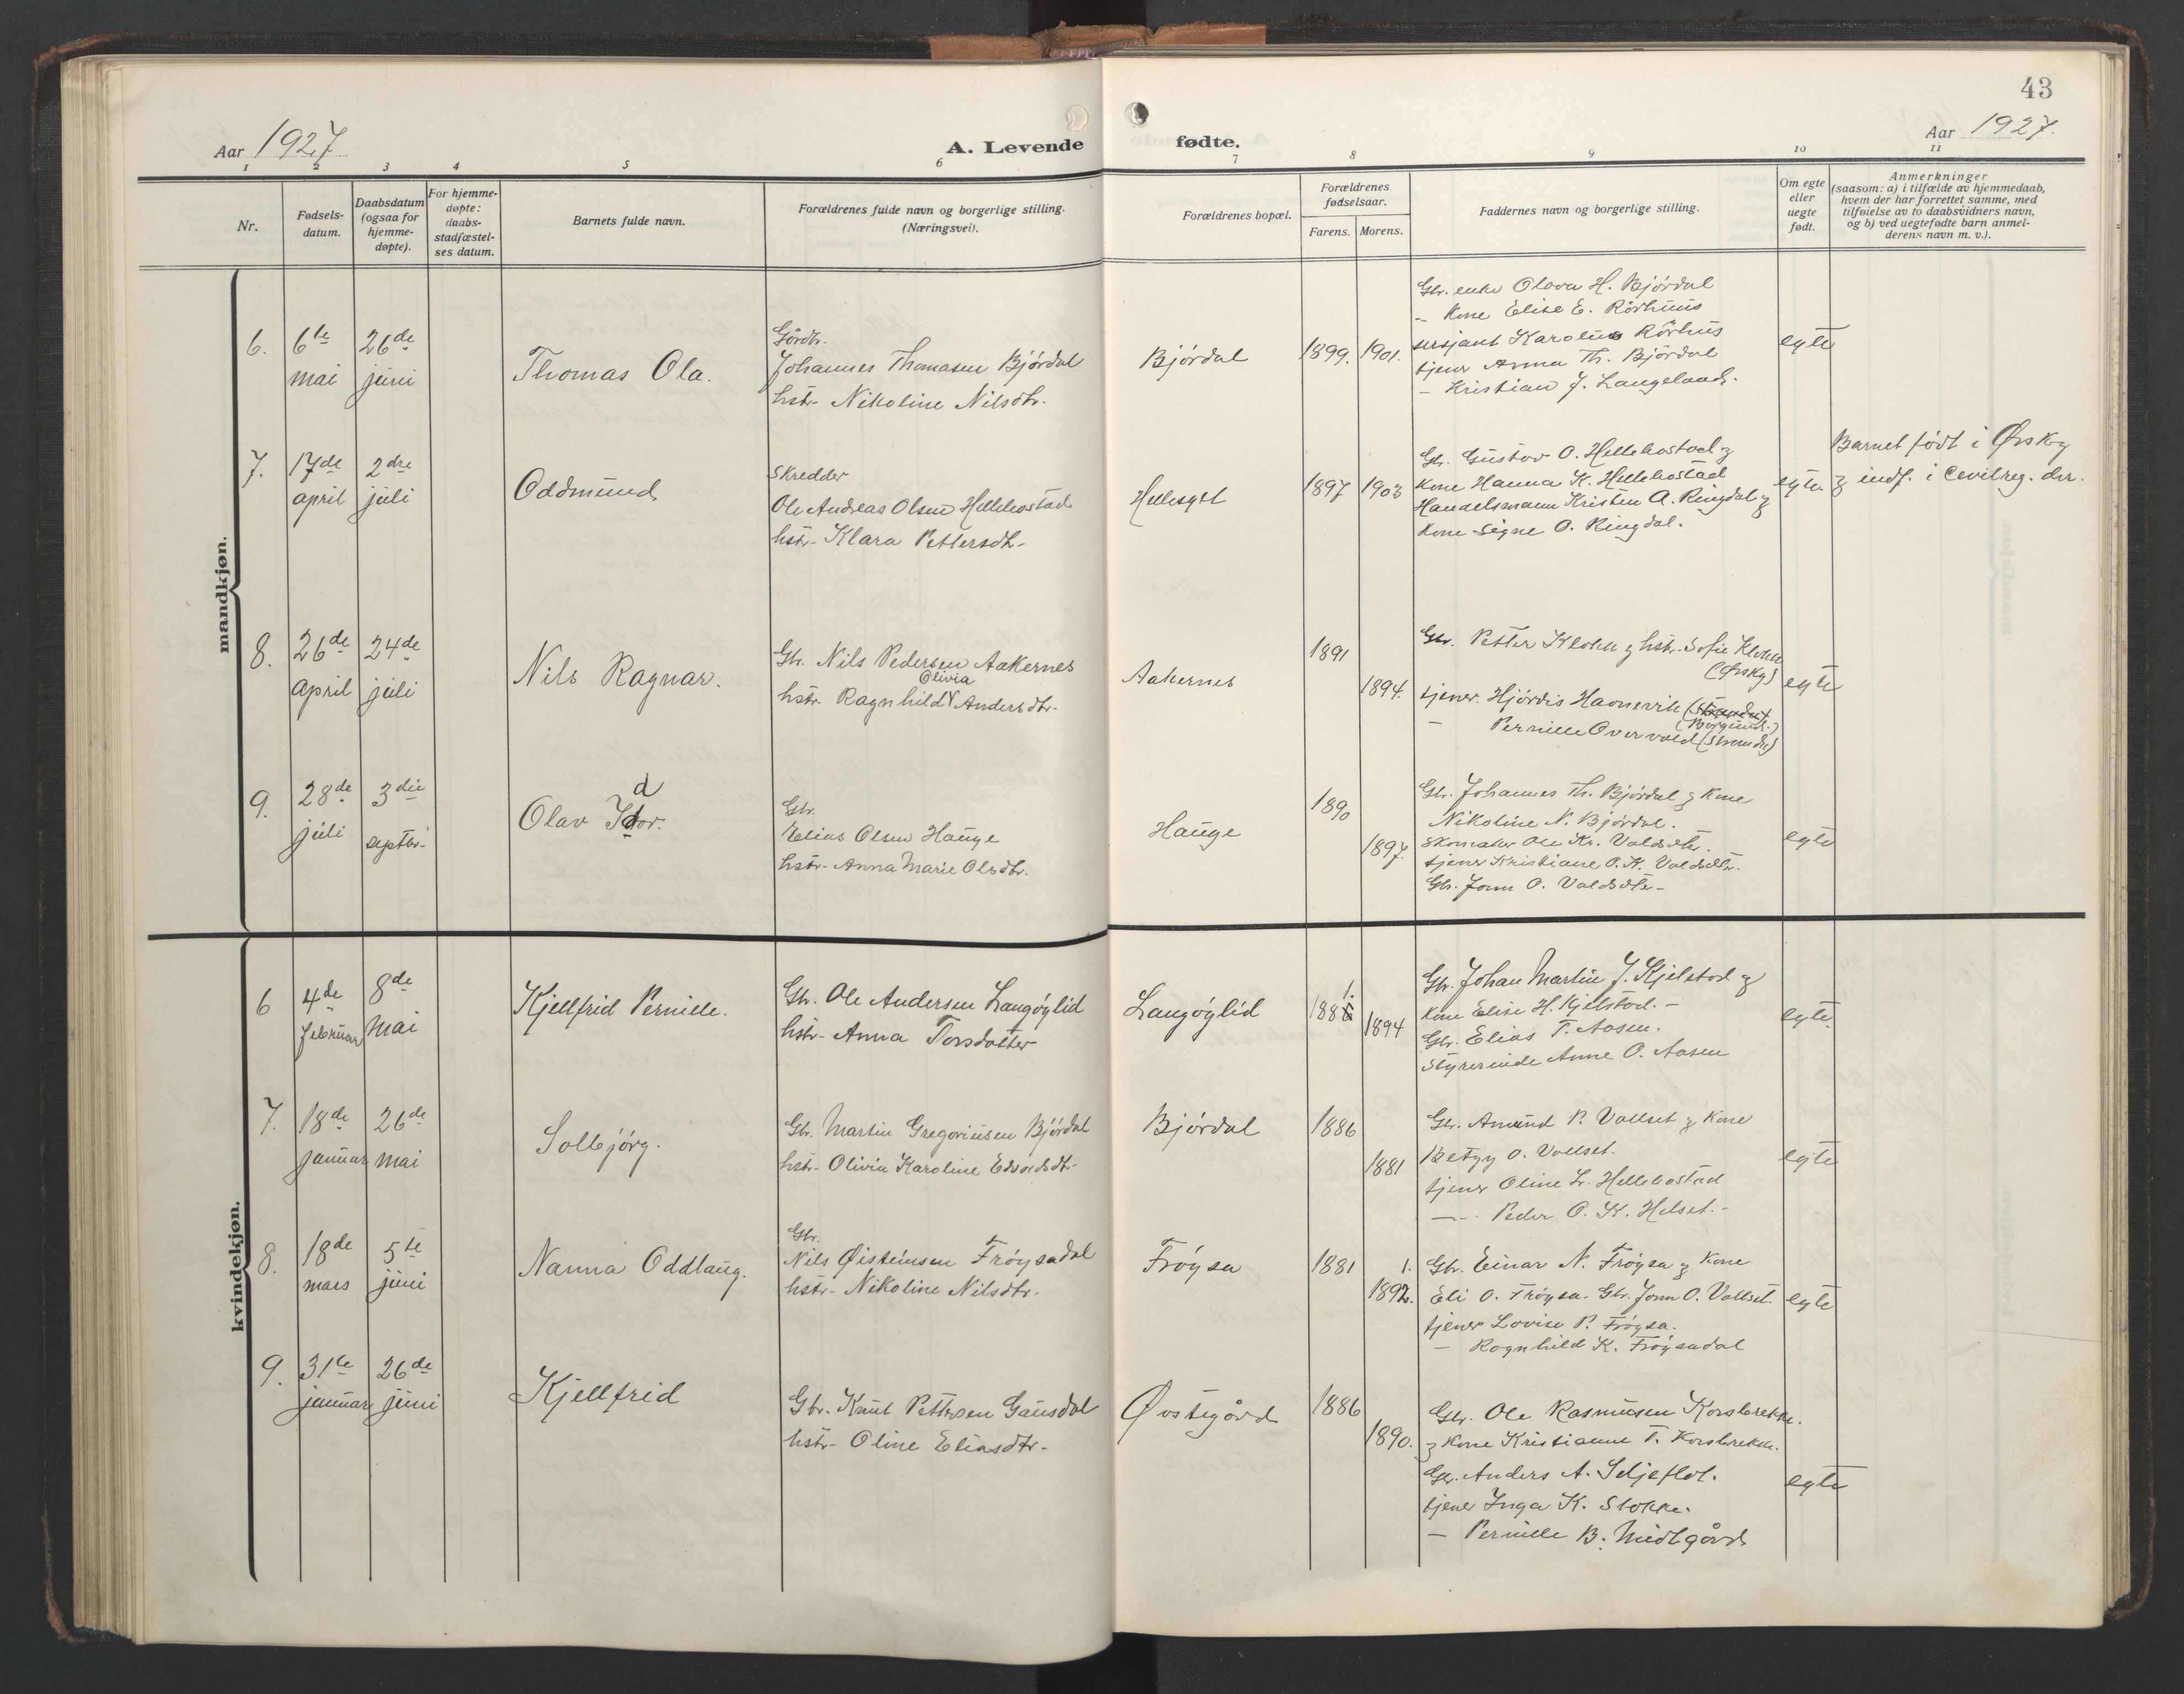 43
Aar 1927
A. Levende
fødte.
Aar 1927.
1 2 3 4 5 6 7 8 9 10 11
Nr.
Fødsels-
datum.
Daabsdatum
(ogsaa for
hjemme-
døpte).
For hjemme-
døpte:
daabs-
stadfæstel-
ses datum.
Barnets fulde navn.
Forældrenes fulde navn og borgerlige stilling.
(Næringsvei).
Forældrenes bopæl.
Forældrenes
fødselsaar.
Farens. Morens.
Faddernes navn og borgerlige stilling.
Om egte
eller
uegte
født.
Anmerkninger
(saasom: a) i tilfælde av hjemmedaab,
hvem der har forrettet samme, med
tilføielse av to daabsvidners navn,
og b) ved uegtefødte barn anmel-
derens navn m. v.).
mandkjøn.
6.
6te
mai
26de
juni
Thomas Ola.
Gårdbr.
Johannes Thomasen Bjørdal
hstr. Nikoline Nilsdtr.
Bjørdal
1899. 1901.
Gbr. enke Olava H. Bjørdal
- Kone Elise E. Rörhuus
sersjant Karolius Rörhus
tjener Anna Th. Bjørdal
- Kristian J. Langeland.
egte
7.
17de
april
2dre
juli
Oddmund
Skredder
Ole Andreas Olsen Hellebostad
hstr- Klara Pettersdt-
Hellesylt
1897 1903
Gb. Gustav O. Hellebostad &
Kone Hanna K. Hellebostad
Handelsmann Kristen A. Ringdal &
Kone Signe O. Ringdal.
egte.
Barnet født i Ørskog
& indf. i Cevilreg. der.
8.
26de
april
24de
juli
Nils Ragnar.
Gb. Nils Pedersen Aakernes
Olivia
hstr. Ragnhild V Andersdtr.
Aakernes
1891
1894.
Gbr. Petter Klokk & hstr. Sofie Klokk
(Ørskog)
tjener. Hjørdis Havnevik
(Borgund.)
- Pernille Overvold (Stranda)
egte
9.
28de
juli
3die
septbr-
d
Olav Idor.
Gbr.
Elias Olsen Hauge
hstr- Anna Marie Olsdtr.
Hauge
1890
1897.
Gb. Johannes Th. Bjørdal & Kone
Nikoline N. Bjørdal.
Skomaker Ole Kr. Valdsdtr.
tjener Kristiane O. K. Valdsdtr.
Gb. Jonn O. Valdsdtr-
egte
kvindekjøn.
6
4de
februar
8de
mai
Kjellfrid Pernille.
Gb. Ole Andersen Langøylid
hstr- Anna Torsdatter
Langøylid
1.
188
1894
Gb. Johan Martin J. Kjelstad &
Kone Elise H. Kjelstad.-
Gbr. Elias T. Aasen.
Styrerinde Anne O. Aasen
egte.
7.
18de
januar
26de
mai
Solbjörg.
Gb. Martin Gregoriusen Bjørdal
hstr- Olivia Karoline Edvardsdt-
Bjørdal
1886
1881
Gb. Amund P. Vollset & Kone
Betzy O. Vollset.
tjener Oline L. Hellebostad
-- Peder O. K. Helset.-
egte
8.
18de
mars
5te
juni
Nanna Oddlaug.
Gbr.
Nils Øisteinsen Frøysadal
hstr- Nikoline Nilsdtr-
Frøysa
1881
1.
1892.
Gbr. Einar N. Frøysa & Kone
Eli O. Frøysa. Gb. Jonn O. Vollset.
tjener Lovise P. Frøysa.
- Ragnhild K. Frøysadal
egte
9.
31te
januar
26de
juni
Kjellfrid
Gbr. Knut Pettersen Gausdal
hstr- Oline Eliasdtr-
Øvstegård
1886
1890.
Gbr. Ole Rasmusen Korsbrekke.
& Kone Kristianne T. Korsbrekke.
Gb. Anders A. Seljeflot.
tjener Inga K. Stokke.
- Pernille B. Midtgård
egte